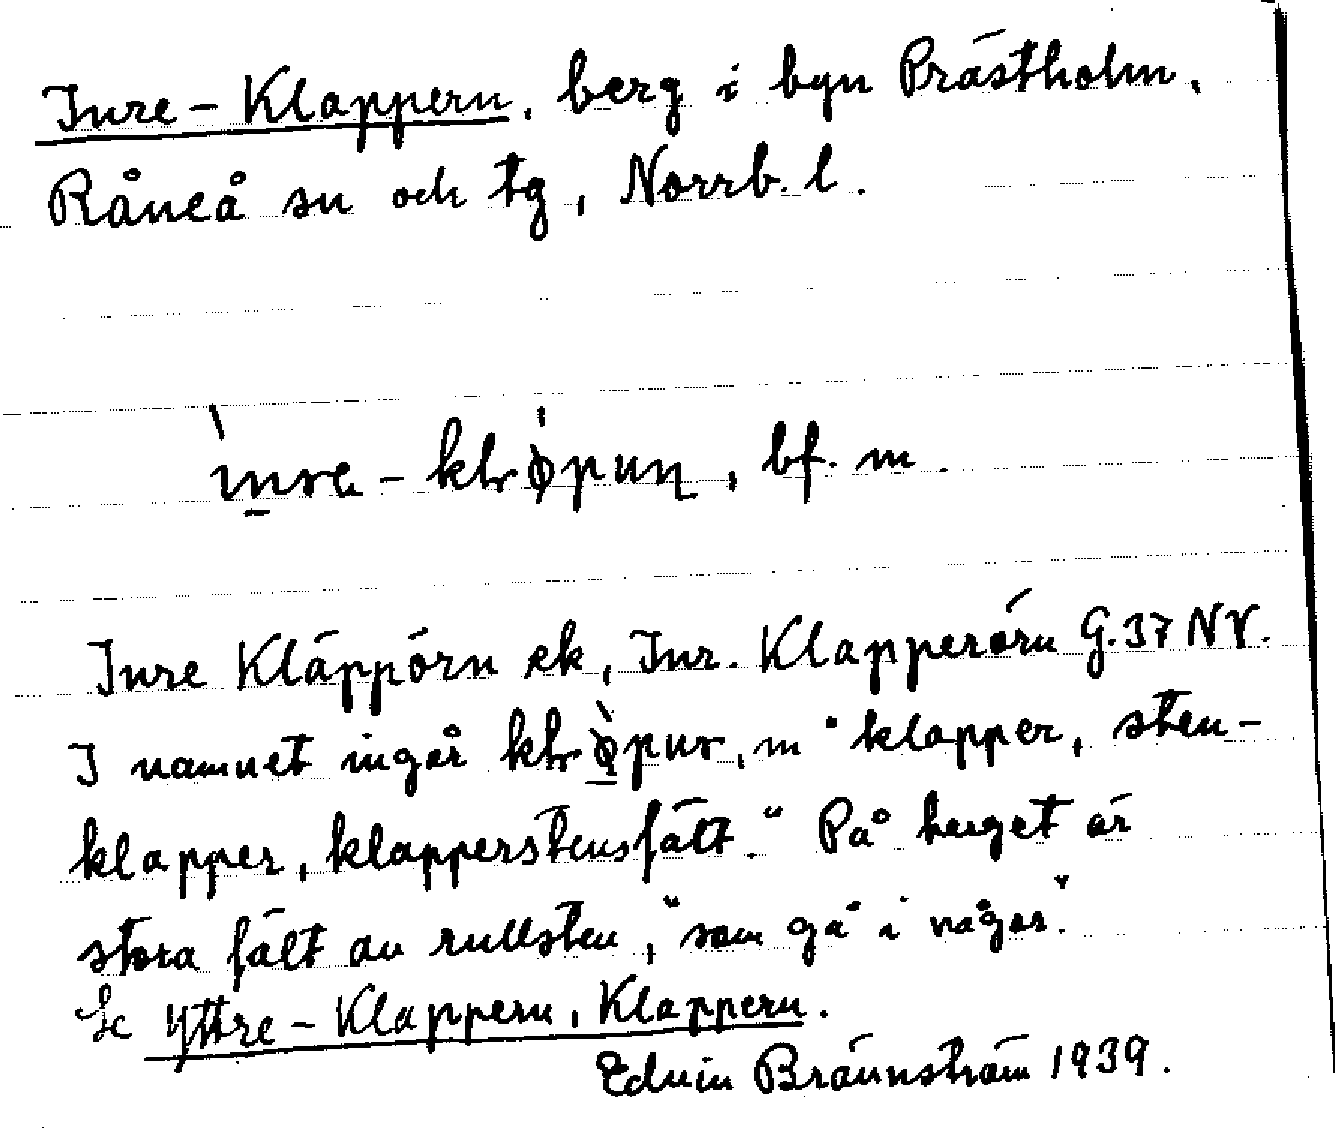 Inre-Klappern, berg i byn Prästholm,
Råneå sn och tg, Norrb. l.
bf. m.
Inre Kläppörn ek, Inr. Klapperörn G.37 NV.
I namnet ingår m "klapper, sten-
klapper, klapperstensfält." På berget är
stora fält av rullsten, "som gå i vågor."
Se Yttre-Klappern, Klappern.
Edvin Brännström 1939.